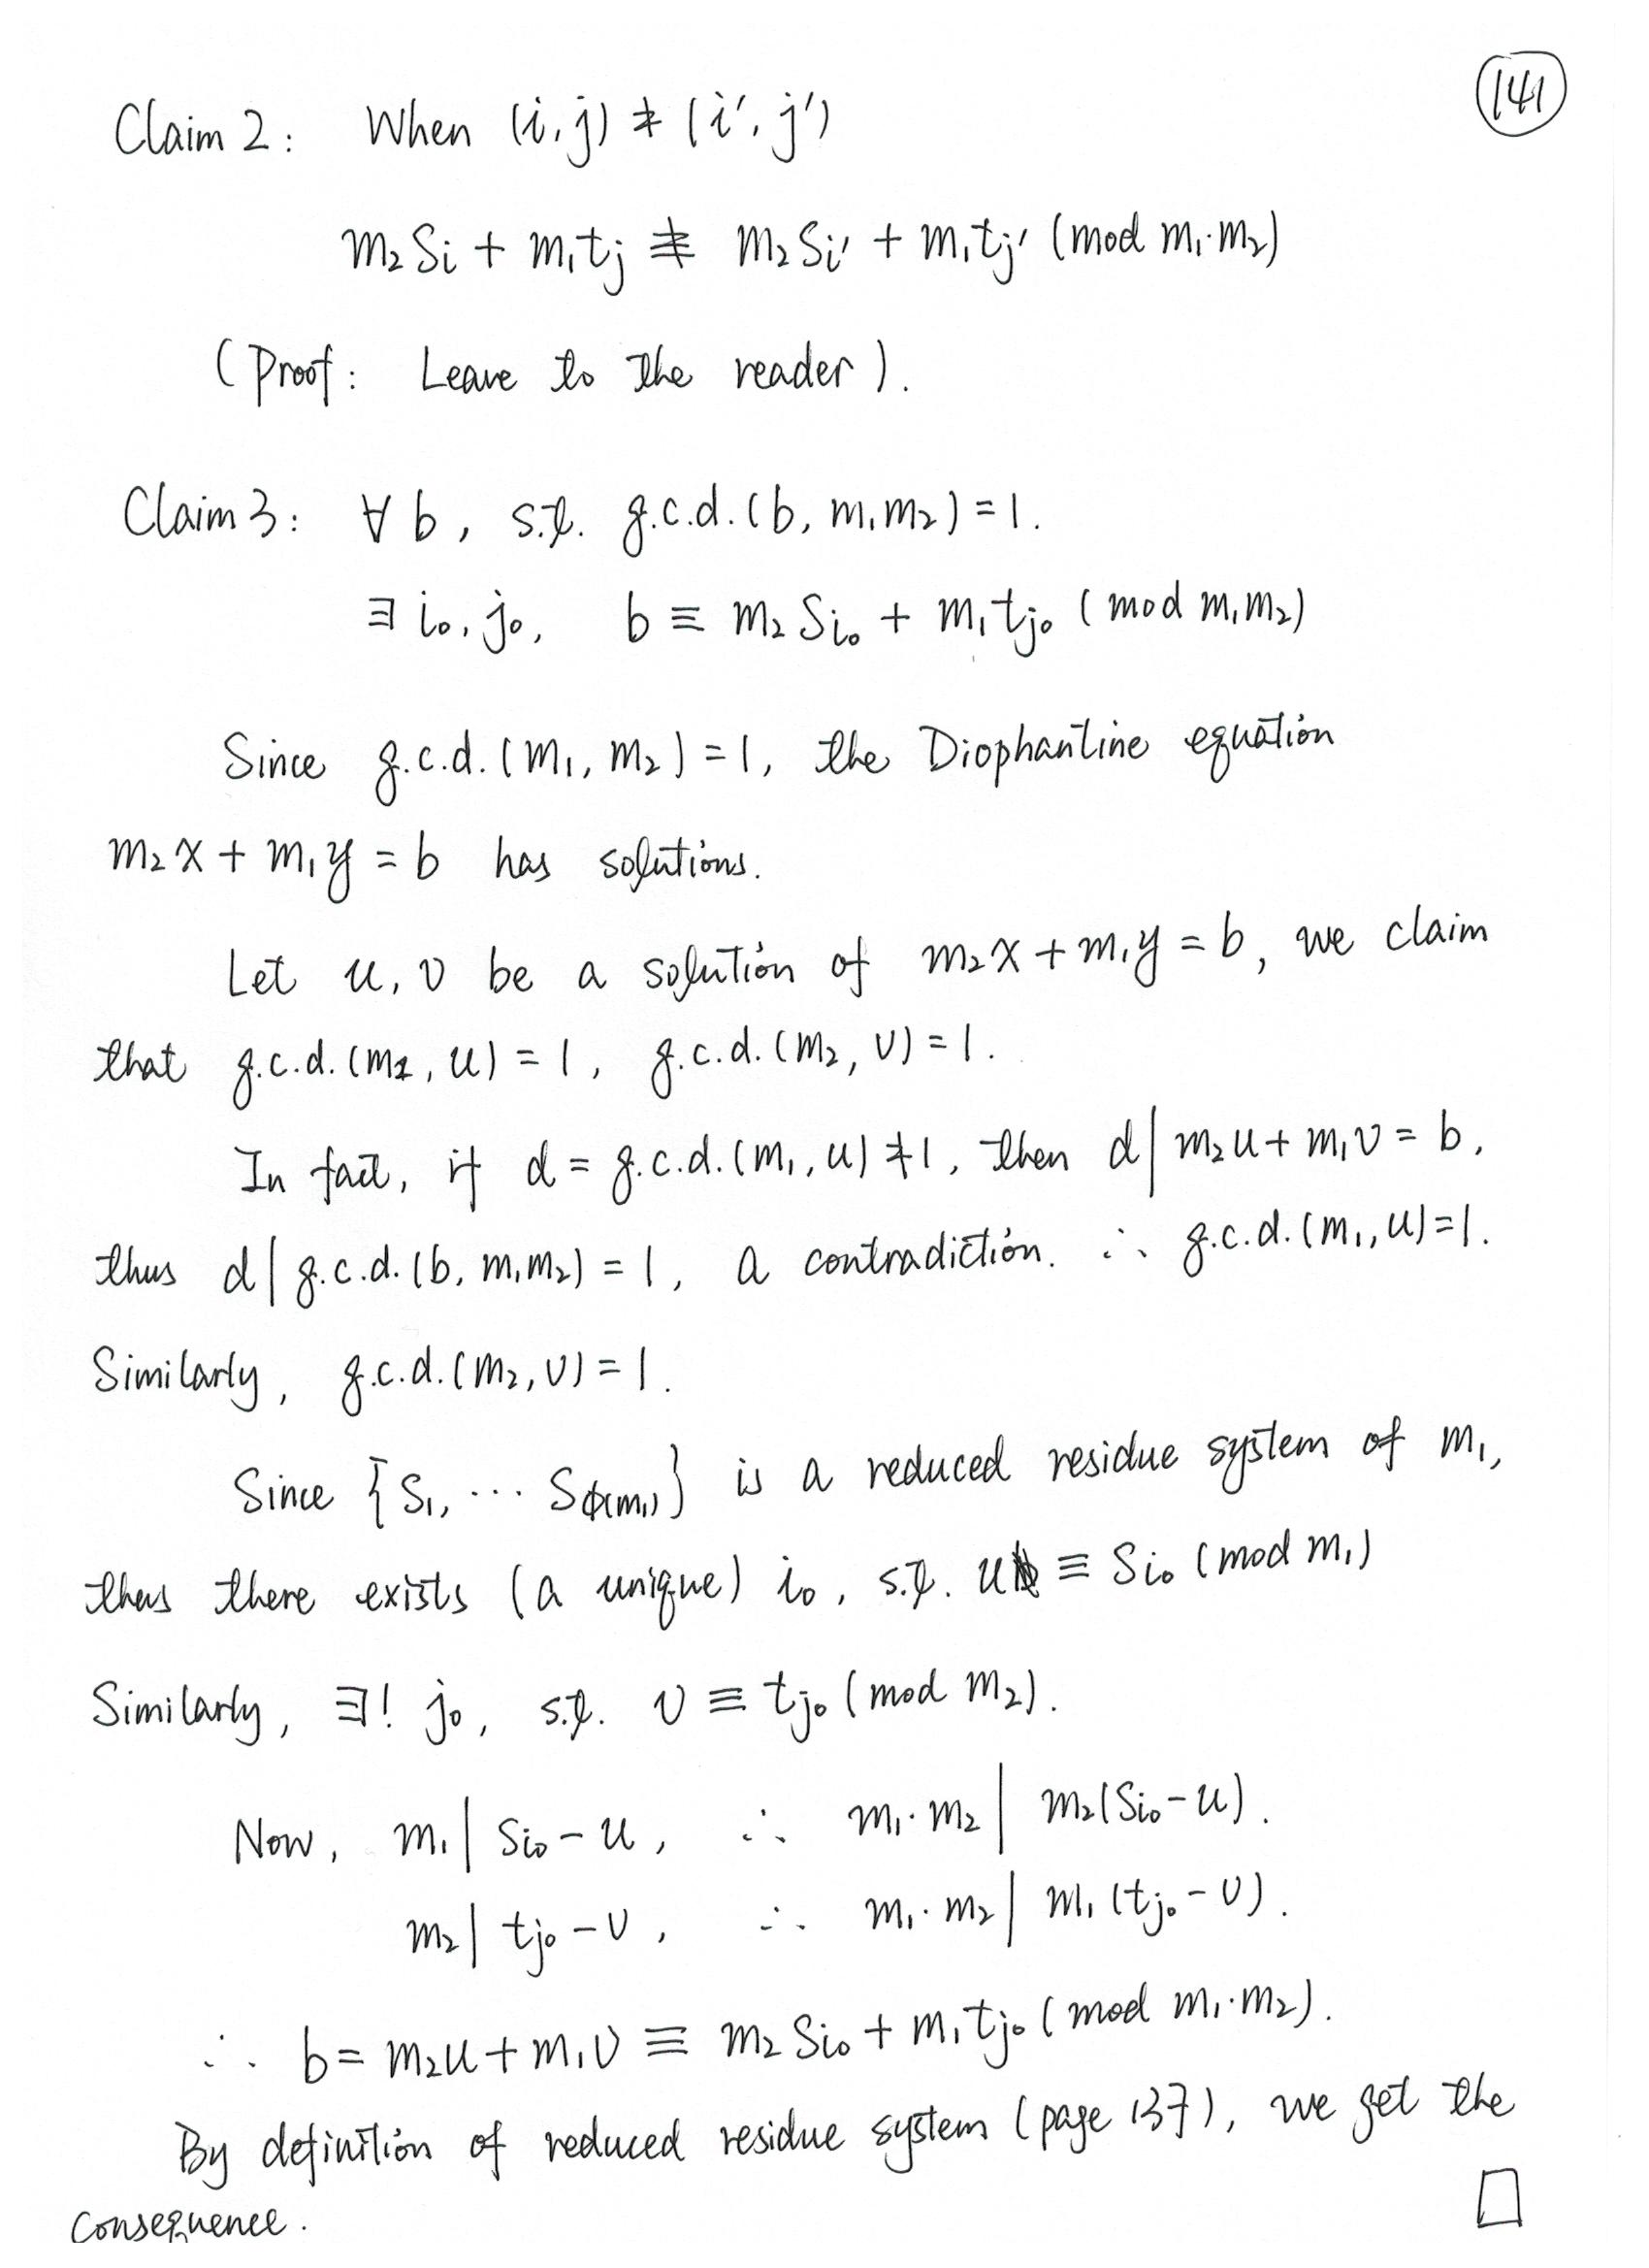 141
Claim 2: When (i, j) ≠ (i′, j′)
m₂ Sᵢ + m₁ tⱼ ≢ m₂ Sᵢ′ + m₁ tⱼ′ (mod m₁·m₂)
(Proof: Leave to the reader).
Claim 3: ∀ b, s.t. g.c.d. (b, m₁m₂) = 1.
∃ i₀, j₀, b ≡ m₂ Sᵢ₀ + m₁ tⱼ₀ (mod m₁m₂)
Since g.c.d. (m₁, m₂) = 1, the Diophantine equation
m₂x + m₁y = b has solutions.
Let u, v be a solution of m₂x + m₁y = b, we claim
that g.c.d. (m₁, u) = 1, g.c.d. (m₂, v) = 1.
In fact, if d = g.c.d. (m₁, u) ≠ 1, then d | m₂u + m₁v = b,
thus d | g.c.d. (b, m₁m₂) = 1, a contradiction. ∴ g.c.d. (m₁, u) = 1.
Similarly, g.c.d. (m₂, v) = 1.
Since {S₁, ··· S_ϕ(m₁)} is a reduced residue system of m₁,
thus there exists (a unique) i₀, s.t. u ≡ Sᵢ₀ (mod m₁)
Similarly, ∃! j₀, s.t. v ≡ tⱼ₀ (mod m₂).
Now, m₁ | Sᵢ₀ - u, ∴ m₁·m₂ | m₂(Sᵢ₀ - u).
m₂ | tⱼ₀ - v, ∴ m₁·m₂ | m₁(tⱼ₀ - v).
∴ b = m₂u + m₁v ≡ m₂ Sᵢ₀ + m₁ tⱼ₀ (mod m₁·m₂).
By definition of reduced residue system (page 137), we get the
consequence. □